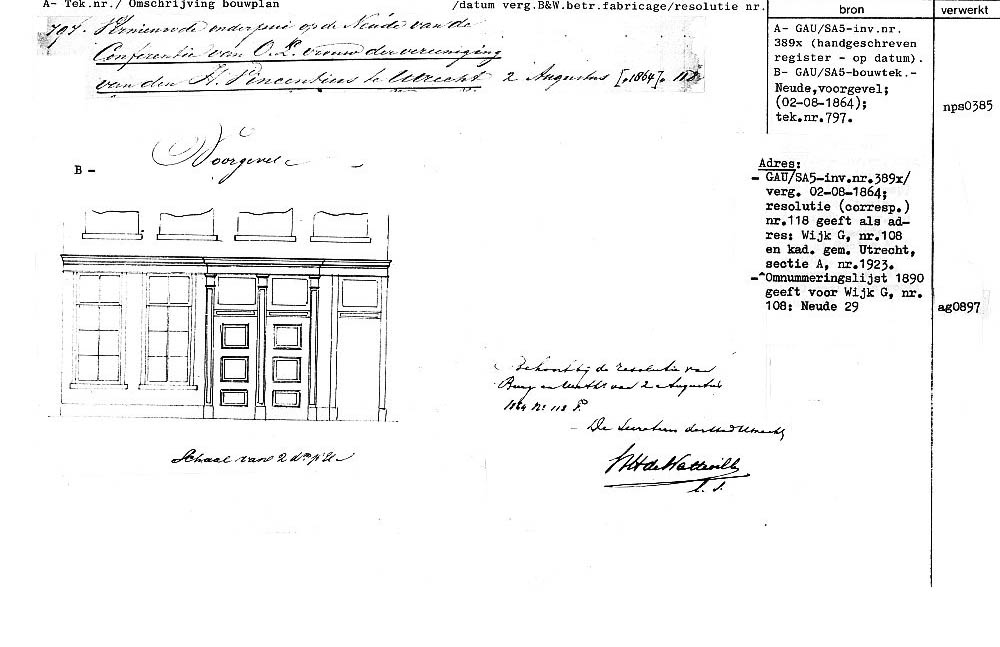 A- Tek.nr./ Omschrijving bouwplan /datum verg.B&W.betr.fabricage/resolutie nr.
bron
verwerkt
797. Vernieuwde onderpui op de Neude van de
Conferentie van O. L. vrouw der vereeniging
van den H. Vincentius te Utrecht 2 Augustus [.1864]. 118
A- GAU/SA5-inv.nr.
389x (handgeschreven
register - op datum).
B- GAU/SA5-bouwtek.-
Neude,voorgevel;
(02-08-1864);
tek.nr.797.
nps0385
B -
Voorgevel
Adres:
- GAU/SA5-inv.nr.389x/
verg. 02-08-1864;
resolutie (corresp.)
nr.118 geeft als ad-
res: Wijk G, nr.108
en kad. gem. Utrecht,
sectie A, nr.1923.
-^Omnummeringslijst 1890
geeft voor Wijk G, nr.
108: Neude 29
ag0897
Behoort bij de resolutie van
Burg en Weth van 2 Augustus
1864 No 118 F.
De Secretaris der Stad Utrecht
de Watteville
l. S.
Schaal van 2 dm p. El